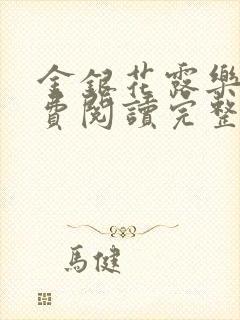 金銀花露樂
費閱讀完整
馬健